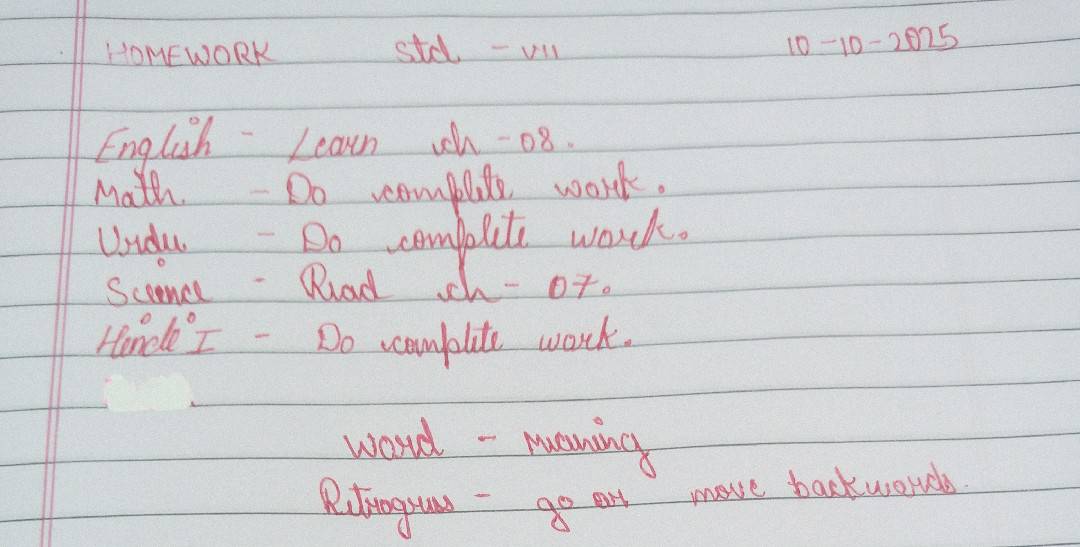 HOMEWORK Std - VII 10-10-2025
English - Learn ch - 08.
Math - Do complete work.
Urdu - Do complete work.
Science - Read ch - 07.
Hindi I - Do complete work.
Word - Meaning
Retrogress - go or move backwards.